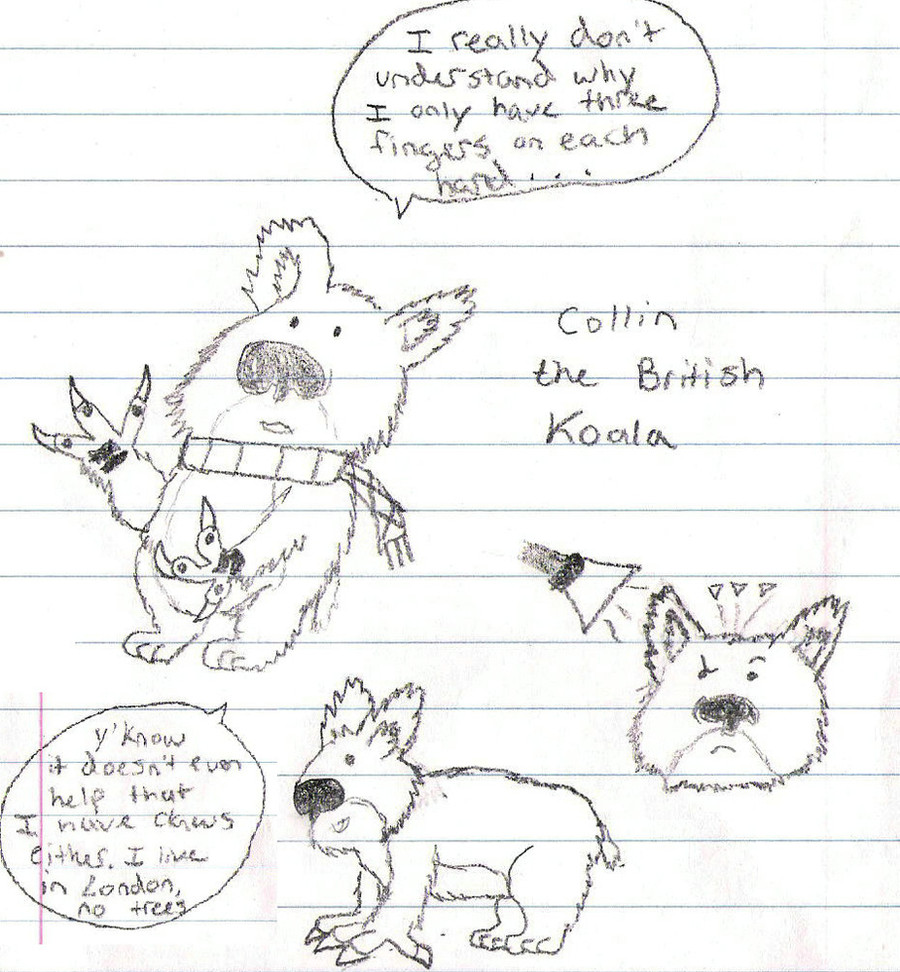 I really don't
understand why
I only have three
fingers on each
hand....
Collin
the British
Koala
y'know
it doesn't even
help that
I have claws
either. I live
in London,
no trees